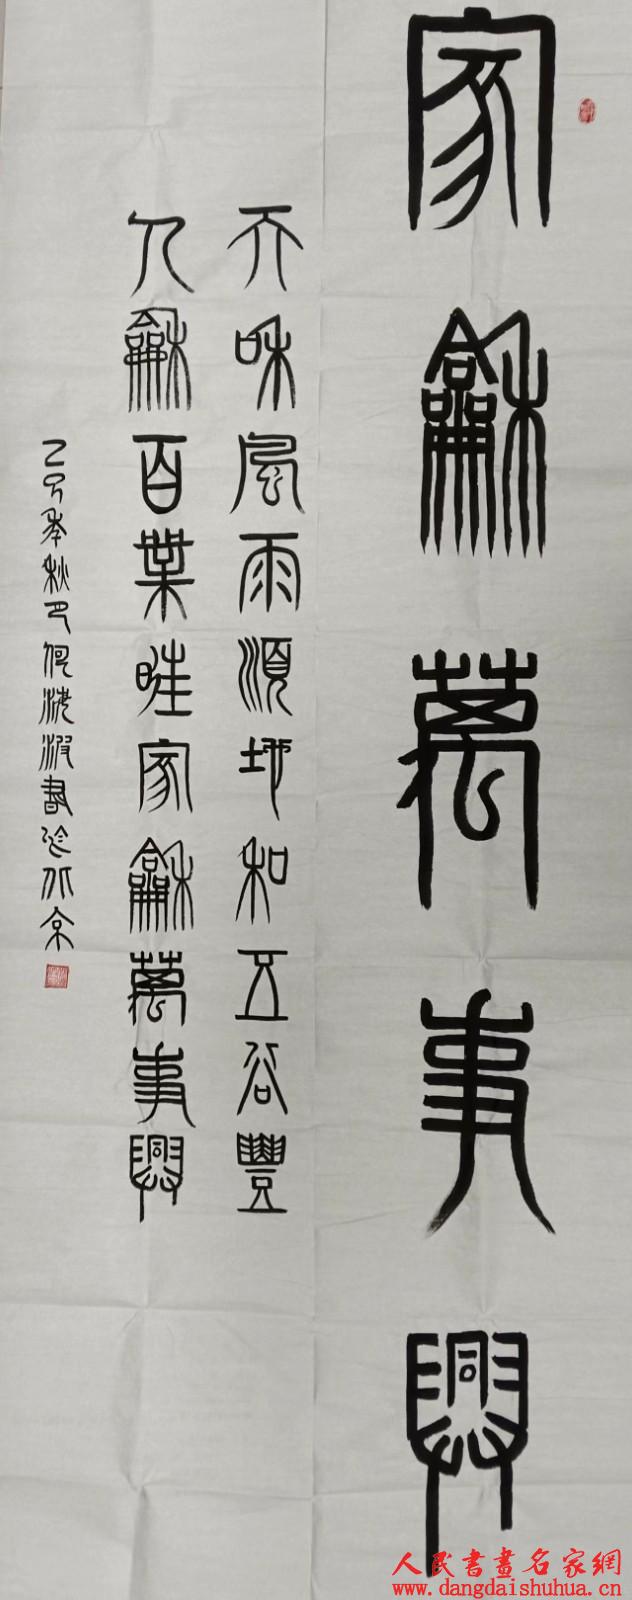 家龢萬事興
天咊風雨順地和五谷豐
人龢百業旺家龢萬事興
乙巳年秋月何洪波書於北京
人民書畫名家網
www.dangdaishuhua.cn